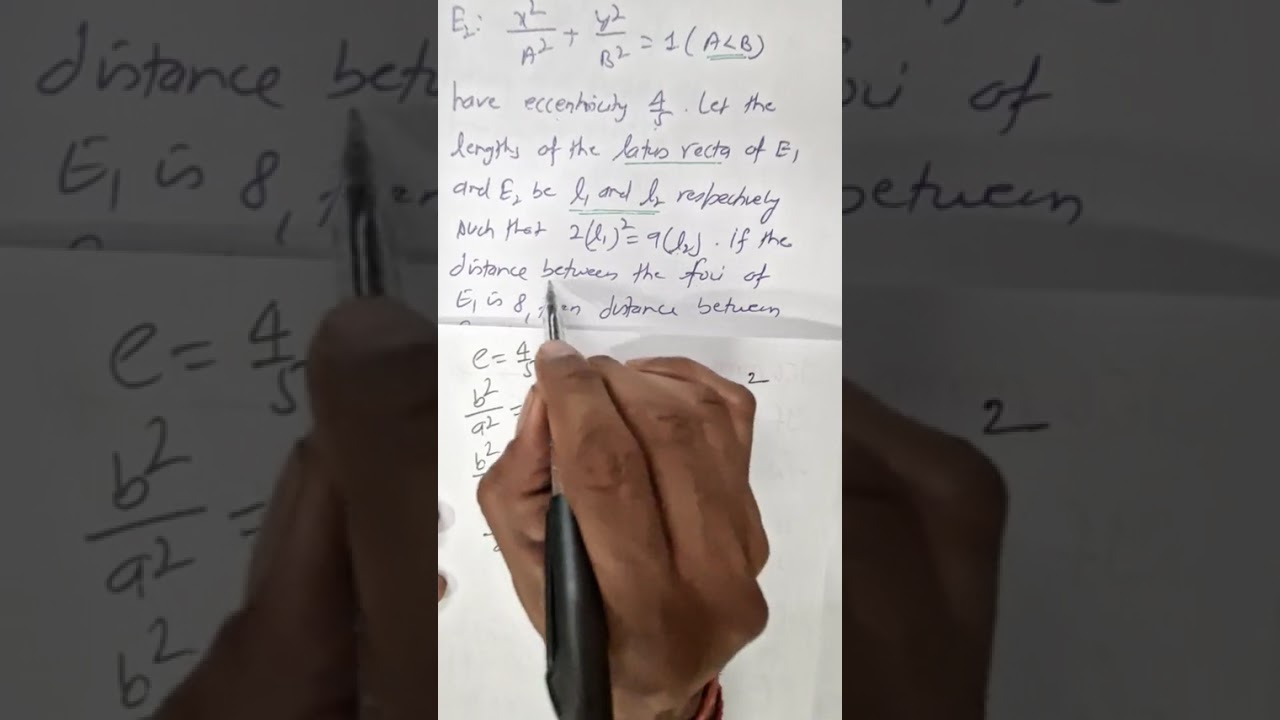 E₂: x²/A² + y²/B² = 1 (A<B)
have eccentricity 4/5. Let the
lengths of the latus recta of E₁
and E₂ be l₁ and l₂ respectively
such that 2(l₁)² = 9(l₂). If the
distance between the foci of
E₁ is 8, then distance between
e = 4/5
b²/a² =
b²
2